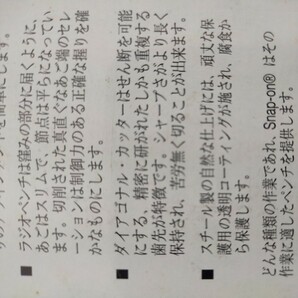 ■ ラジオペンチは窪みの部分に届くように、
あごはスリムで、節点は平らになってい
ます。切削された真直ぐなあご端のセレ
ーションは制御力のある正確な握りを確
かなものにします。
■ ダイアゴナル・カッターはせん断を可能
にする、精密に研がれたしかも重複する
歯先が特徴です。シャープさがより長く
保持され、苦労無く切ることが出来ます。
■ スチール製の自然な仕上げには、頑丈な保
護用の透明コーティングが施され、腐食か
ら保護します。
どんな種類の作業であれ、Snap-on® はその
作業に適したペンチを提供します。